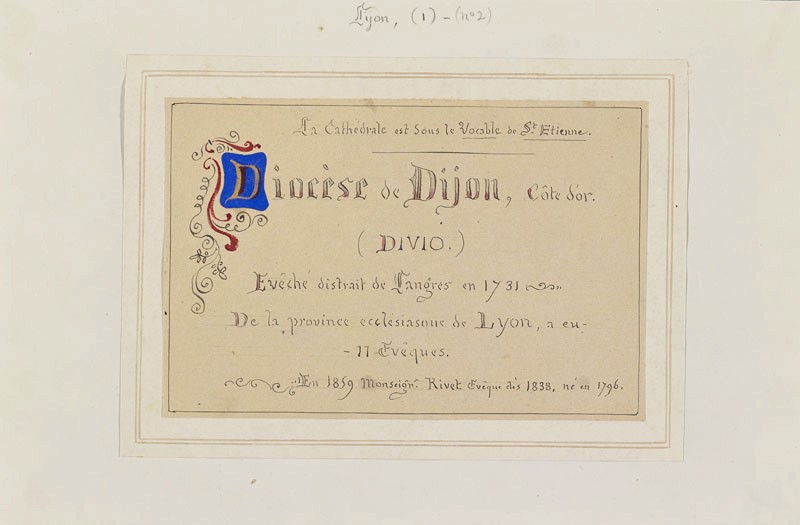 Lyon, (1) - (nº 2)
La Cathédrale est sous le Vocable de St. Etienne.
Diocèse de Dijon, Côte d'or.
( DIVIO. )
Evêché distrait de Langres en 1731
De la province ecclésiasque de Lyon, a eu-
- 11 Evêques.
En 1859 Monseignr. Rivet, Evêque dès 1838, né en 1796.